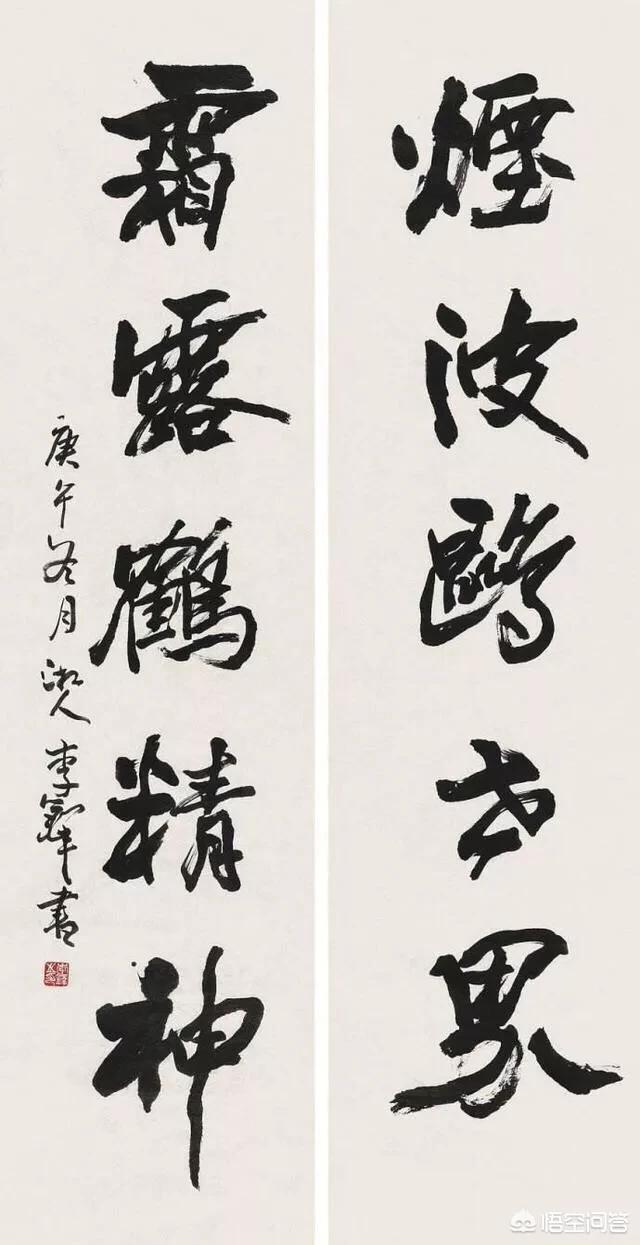 煙波鷗世界
霜露鶴精神
庚午冬月湘人李鐸書
悟空问答